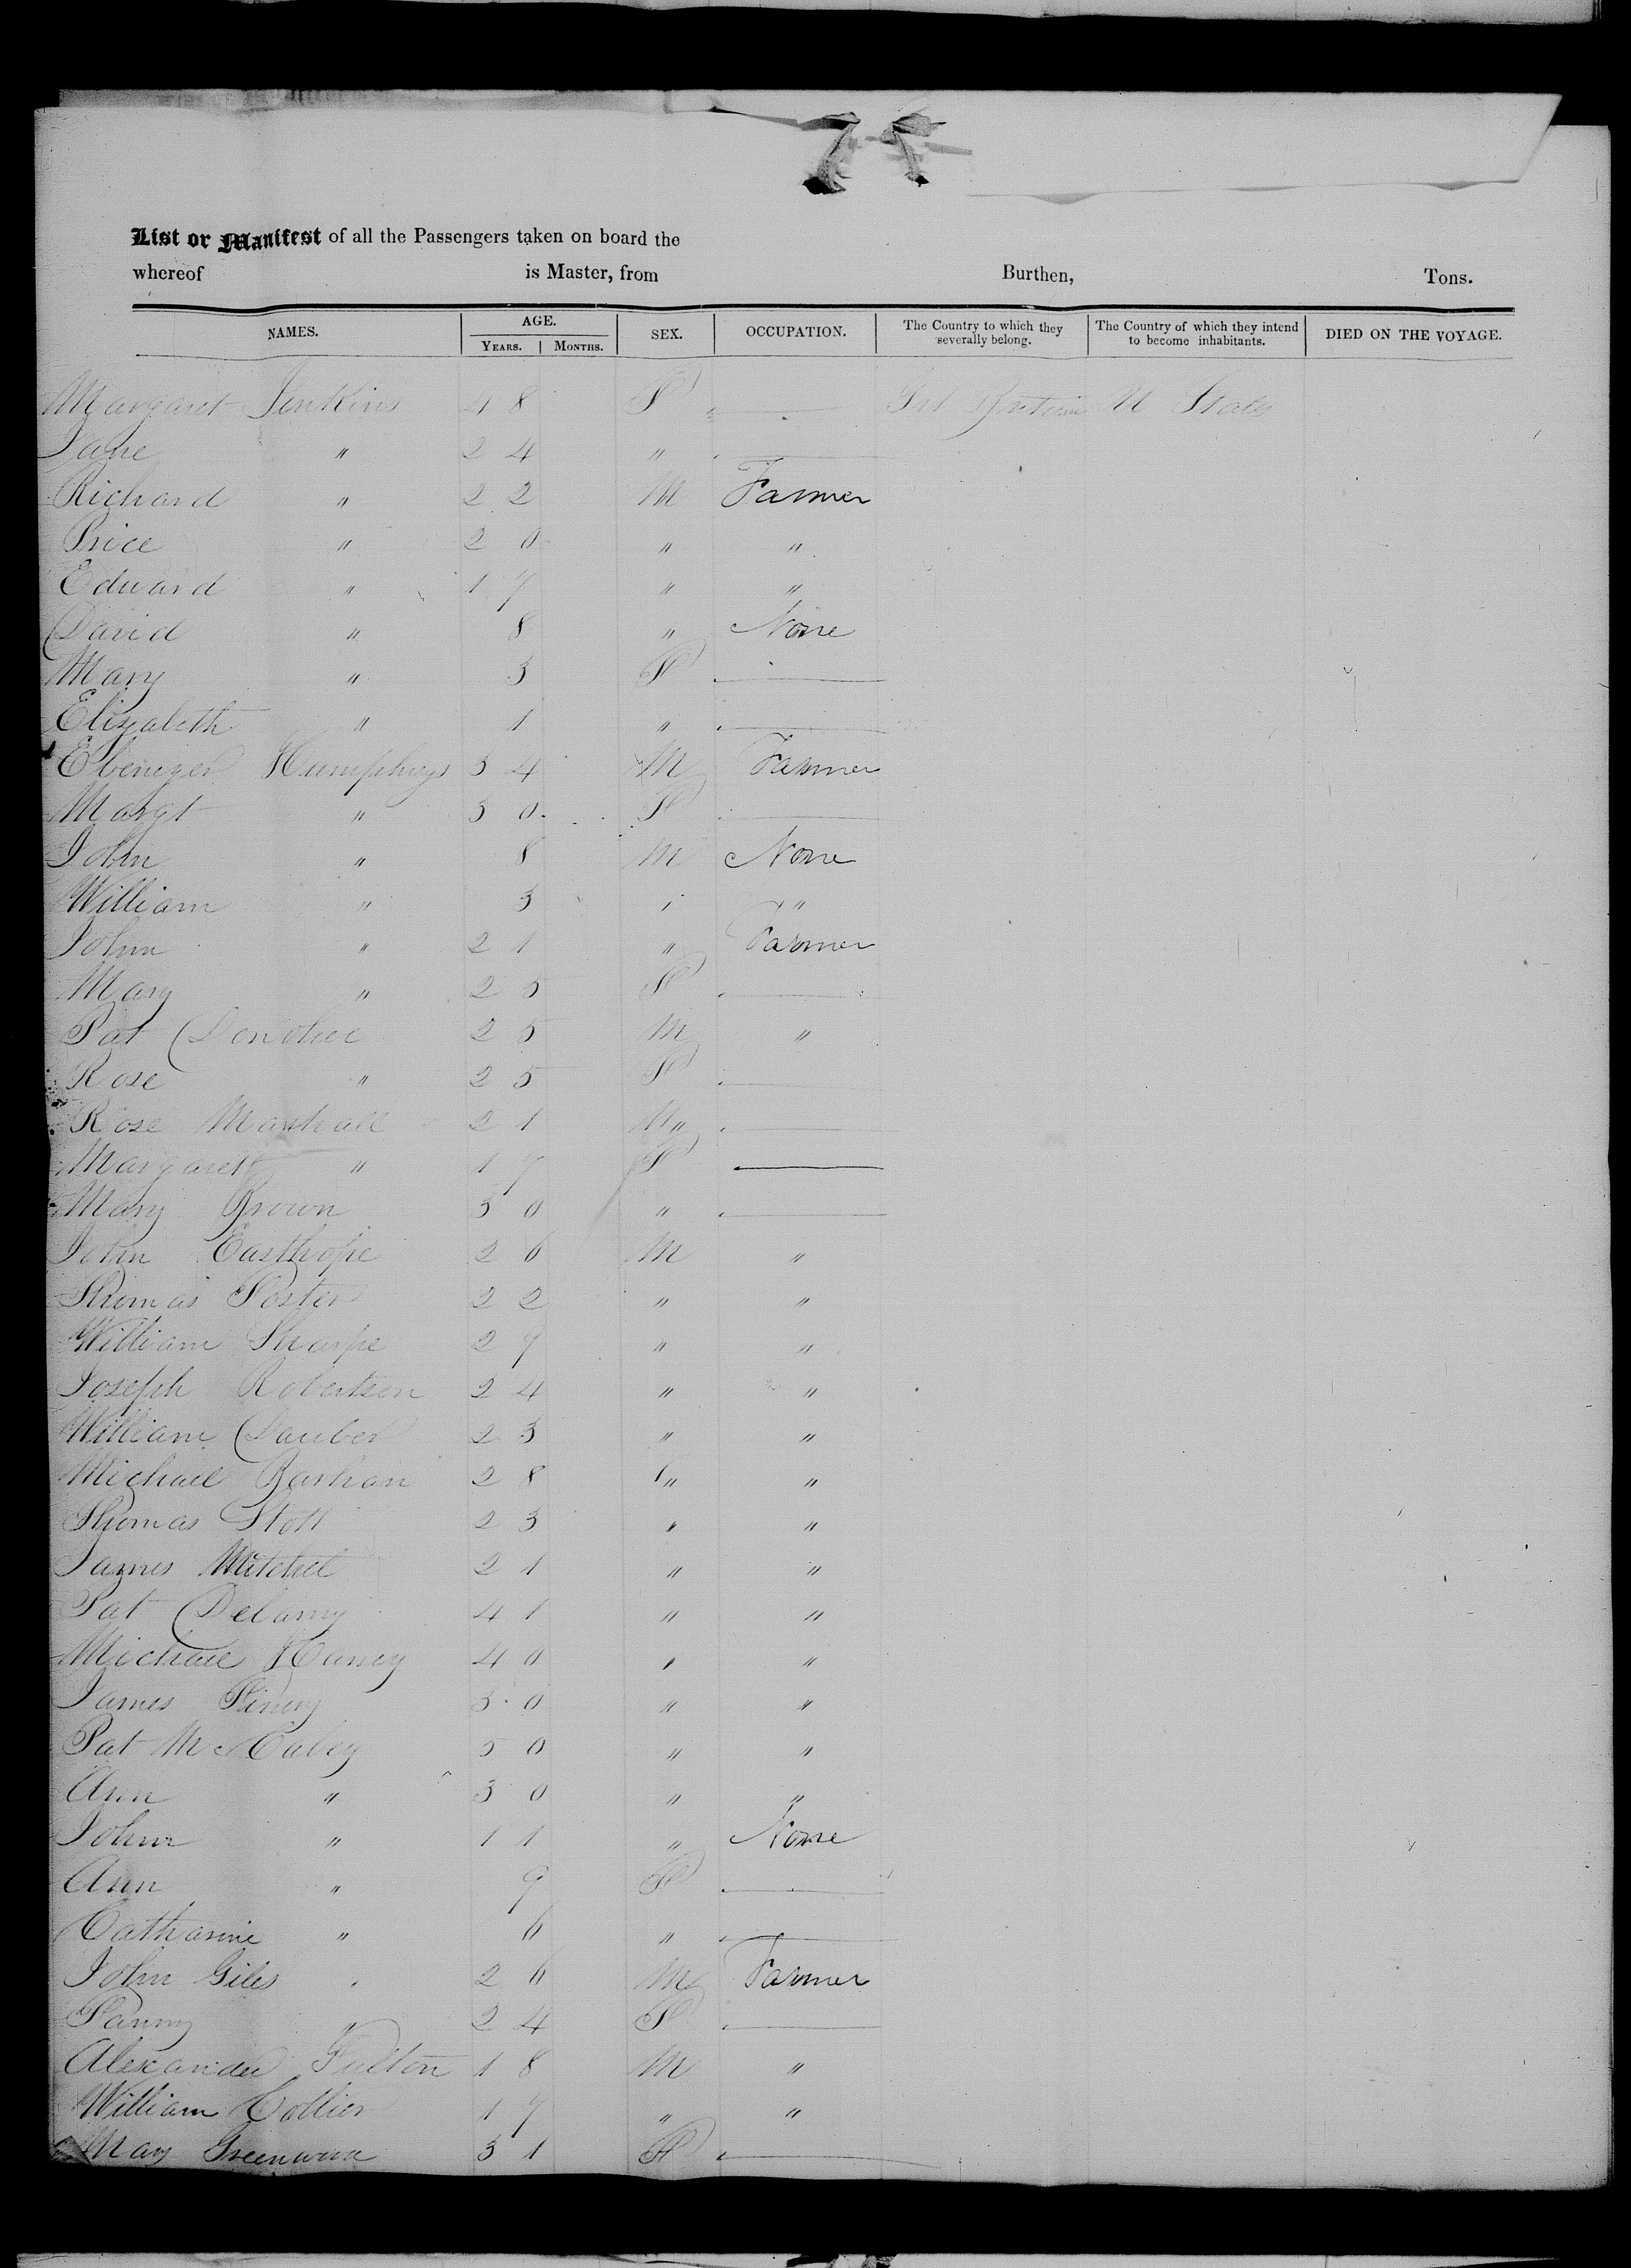 List or Manifest of all the Passengers taken on board the
whereof is Master, from Burthen, Tons.
NAMES. AGE. SEX. OCCUPATION. The Country to which they severally belong. The Country of which they intend to become inhabitants. DIED ON THE VOYAGE.
YEARS. MONTHS.
Margaret Jenkins 48 F — Grt Britain U States
Jane " 24 " —
Richard " 22 M Farmer
Price " 20 " "
Edward " 17 " "
David " 8 " None
Mary " 3 F —
Elizabeth " 1 " —
Ebenezer Humphreys 34 M Farmer
Margt " 30 F —
John " 8 M None
William " 3 " "
John " 21 " Farmer
Mary " 25 F —
Pat Donohue 25 M "
Rose " 25 F —
Rose Marshall 21 " —
Margaret " 17 F —
Mary Brown 30 " —
John Easthope 26 M "
Thomas Foster 22 " "
William Sharpe 29 " "
Joseph Robertson 24 " "
William Dauber 23 " "
Michael 28 " "
Thomas Stott 23 " "
James Mitchel 21 " "
Pat Delamy 41 " "
Michael 40 " "
James 30 " "
Pat McCabey 50 " "
Ann " 30 " "
John " 11 " None
Ann " 9 F —
Catharine " 6 " —
John Giles 26 M Farmer
Fanny " 24 F —
Alexander Fulton 18 M "
William Collier 17 " "
Mary 31 F —